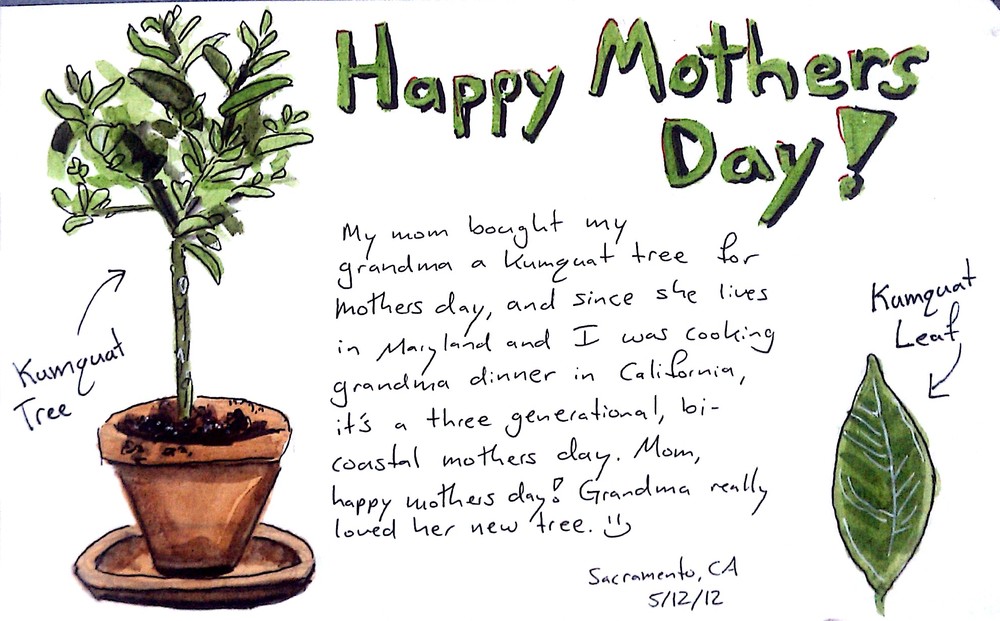 Happy Mothers
Day!
My mom bought my
grandma a Kumquat tree for
mothers day, and since she lives
in Maryland and I was cooking
grandma dinner in California,
it's a three generational, bi-
coastal mothers day. Mom,
happy mothers day! Grandma really
loved her new tree. :)
Sacramento, CA
5/12/12
Kumquat
Tree
Kumquat
Leaf